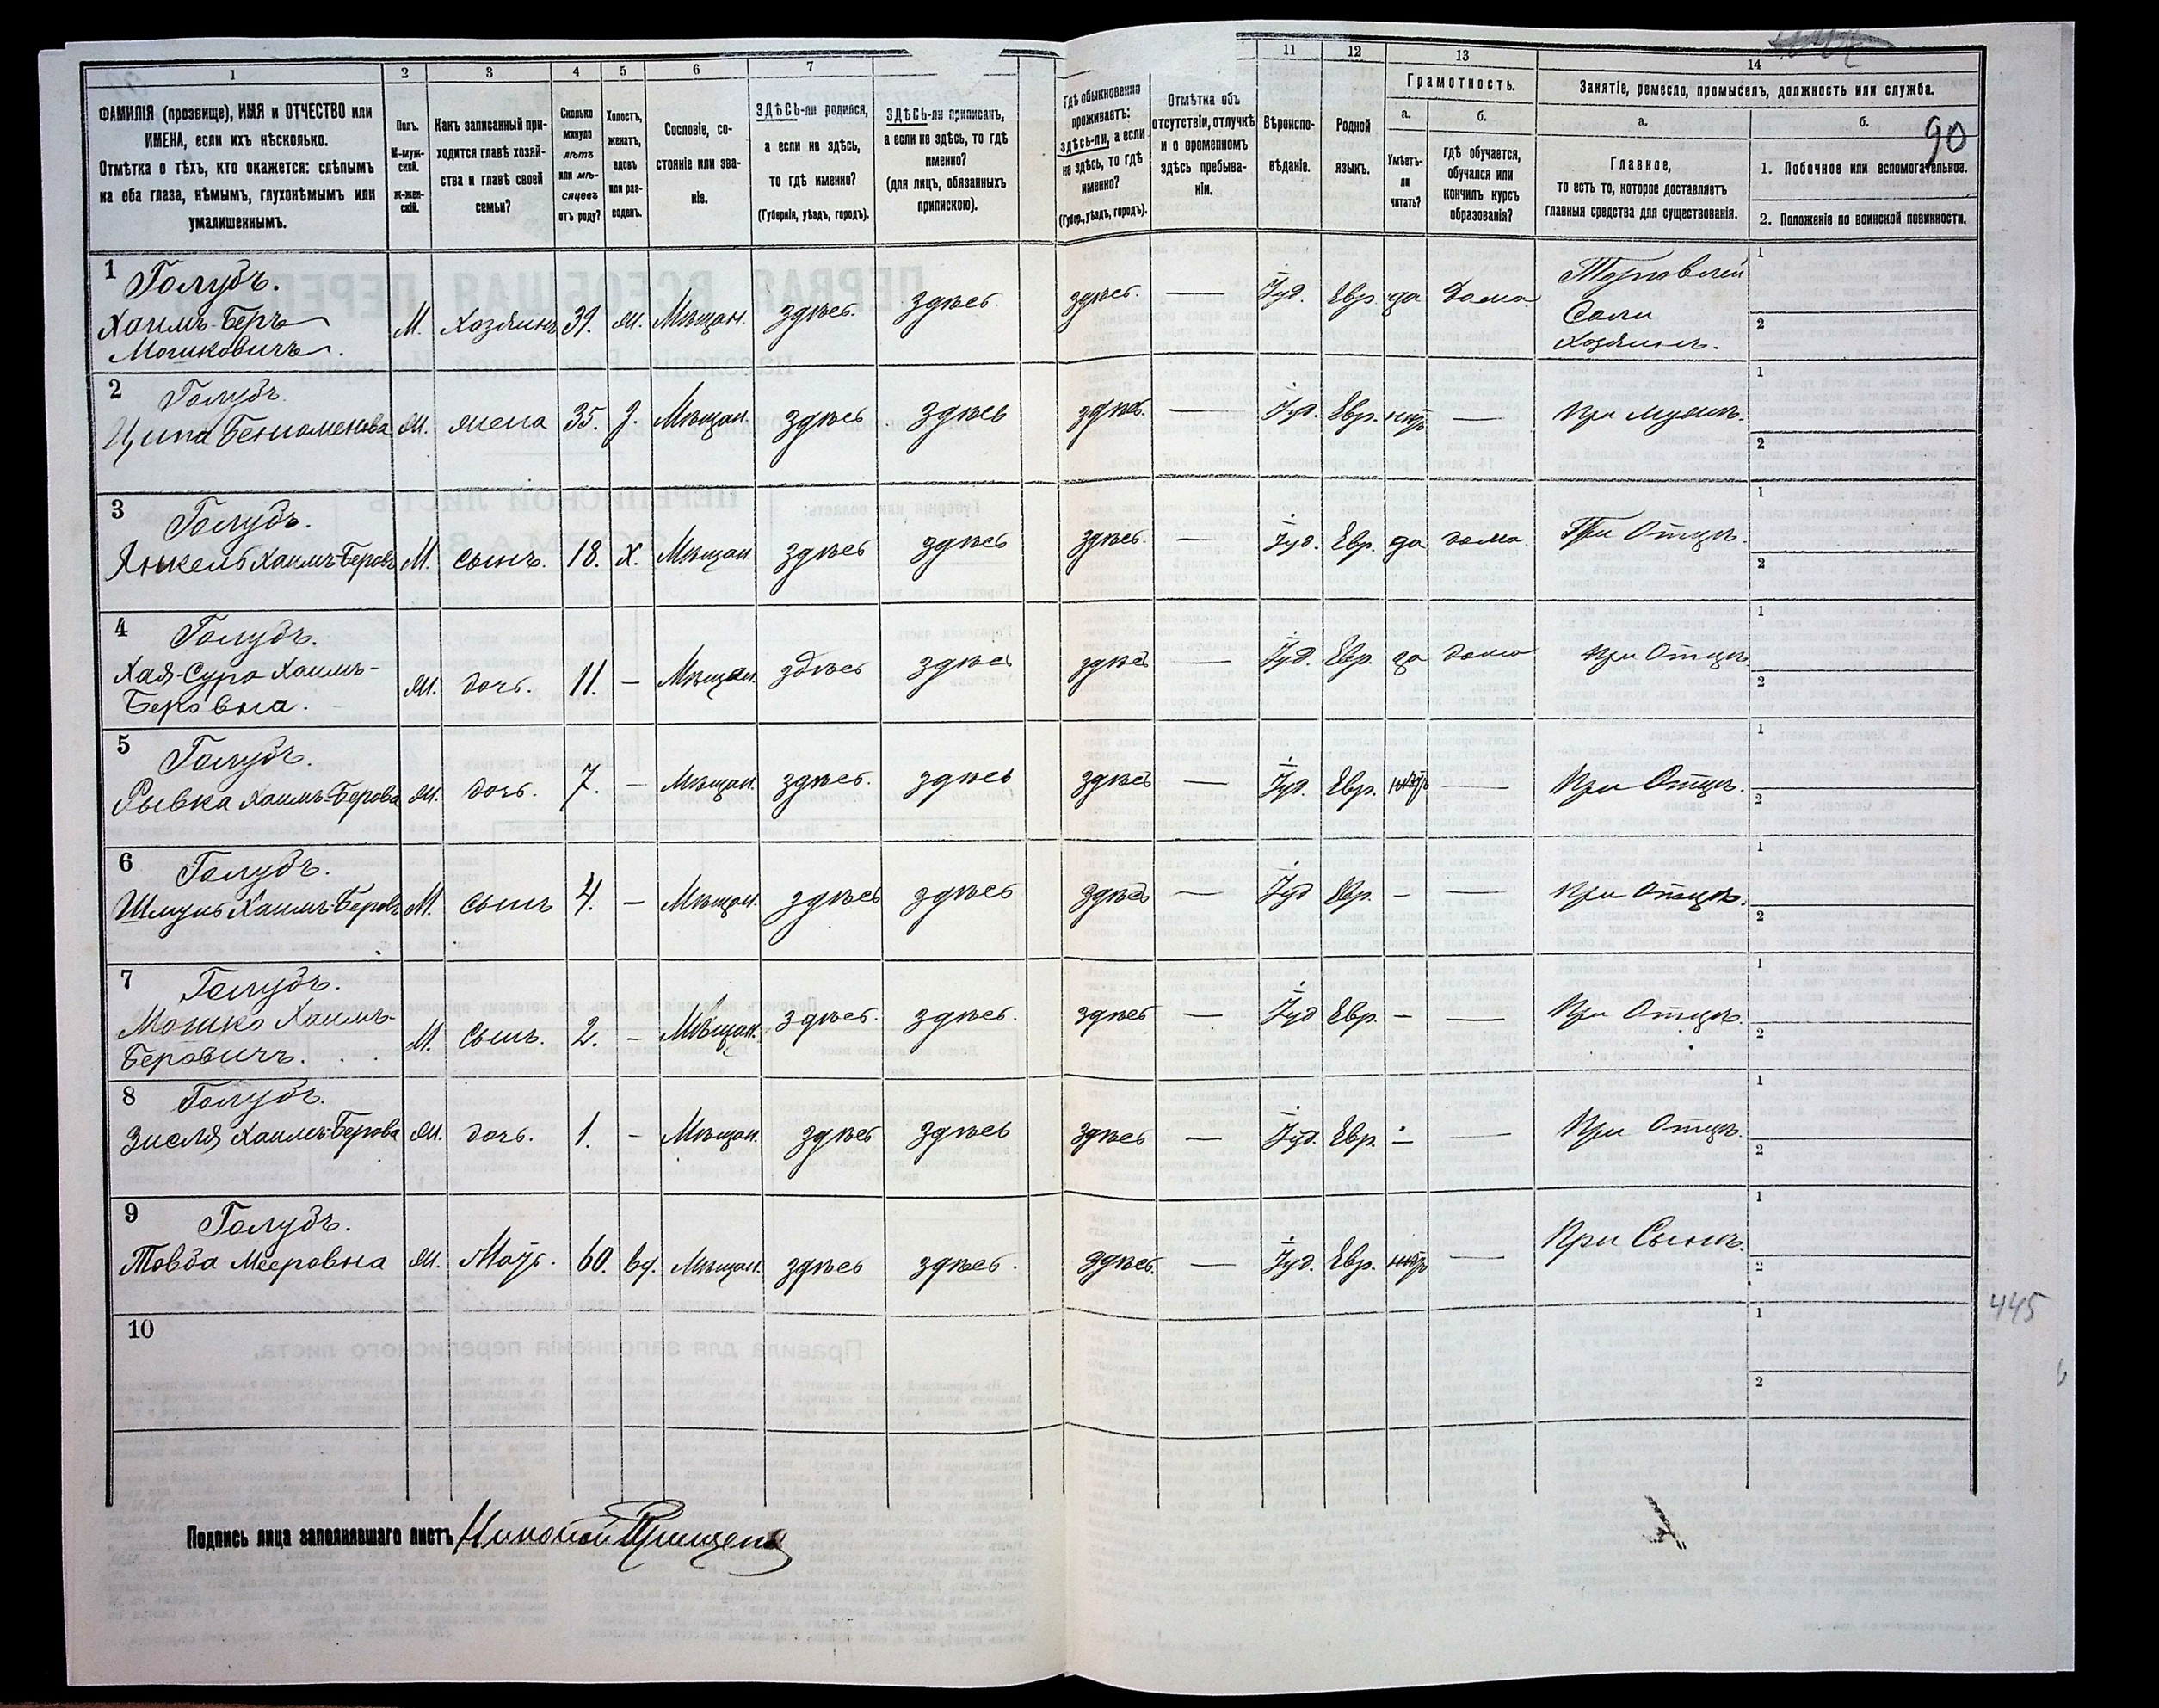 1
2
3
4
5
6
7
11
12
13
14
ФАМИЛІЯ (прозвище), ИМЯ и ОТЧЕСТВО или
ИМЕНА, если ихъ нѣсколько.
Отмѣтка о тѣхъ, кто окажется: слѣпымъ
на оба глаза, нѣмымъ, глухонѣмымъ или
умалишеннымъ.
Полъ.
М-муж-
ской.
Ж-жен-
скій.
Какъ записанный при-
ходится главѣ хозяй-
ства и главѣ своей
семьи?
Сколько
минуло
лѣтъ
или мѣ-
сяцевъ
отъ роду?
Холостъ,
женатъ,
вдовъ
или раз-
веденъ.
Сословіе, со-
стояніе или зва-
ніе.
ЗДѢСЬ-ли родился,
а если не здѣсь,
то гдѣ именно?
(Губернія, уѣздъ, городъ).
ЗДѢСЬ-ли приписанъ,
а если не здѣсь, то гдѣ
именно?
(для лицъ, обязанныхъ
припискою).
Гдѣ обыкновенно
проживаетъ:
здѣсь-ли, а если
не здѣсь, то гдѣ
именно?
(Губер., уѣздъ, городъ).
Отмѣтка объ
отсутствіи, отлучкѣ
и о временномъ
здѣсь пребыва-
ніи.
Вѣроиспо-
вѣданіе.
Родной
языкъ.
Грамотность.
а.
Умѣетъ-
ли
читать?
б.
гдѣ обучается,
обучался или
кончилъ курсъ
образованія?
Занятіе, ремесло, промыселъ, должность или служба.
а.
Главное,
то есть то, которое доставляетъ
главныя средства для существованія.
б.
90
1. Побочное или вспомогательное.
2. Положеніе по воинской повинности.
1 Голубъ.
Хаимъ-Беръ
Мошковичъ.
М. Хозяинъ 39. ж. Мѣщан. здѣсь. здѣсь. здѣсь. — Іуд. Евр. да дома
Торговлей
Соли
Хозяинъ.
1
2
2 Голубъ.
Ципа Беніоменова Ж. жена 35. з. Мѣщан. здѣсь здѣсь здѣсь. — Іуд. Евр. нѣтъ — При мужѣ.
1
2
3 Голубъ.
Янкель Хаимъ-Беровъ М. сынъ. 18. х. Мѣщан здѣсь здѣсь здѣсь. — Іуд. Евр. да дома. При Отцѣ.
1
2
4 Голубъ.
Хая-Сура Хаимъ-
Беровна.
Ж. дочь. 11. — Мѣщан. здѣсь здѣсь здѣсь — Іуд. Евр. да дома При Отцѣ
1
2
5 Голубъ.
Рывка Хаимъ-Берова Ж. дочь. 7. — Мѣщан. здѣсь. здѣсь здѣсь — Іуд. Евр. нѣтъ — При Отцѣ.
1
2
6 Голубъ.
Шмуль Хаимъ-Беровъ М. сынъ 4. — Мѣщан. здѣсь здѣсь здѣсь — Іуд Евр. — — При Отцѣ.
1
2
7 Голубъ.
Мошко Хаимъ-
Беровичъ.
М. сынъ. 2. — Мѣщан. здѣсь. здѣсь. здѣсь — Іуд Евр. — — При Отцѣ.
1
2
8 Голубъ.
Зисля Хаимъ-Берова Ж. дочь. 1. — Мѣщан. здѣсь здѣсь здѣсь — Іуд. Евр. — — При Отцѣ.
1
2
9 Голубъ.
Товба Мееровна Ж. Мать. 60. вд. Мѣщан. здѣсь здѣсь. здѣсь. — Іуд. Евр. нѣтъ — При Сынѣ.
1
2
445
10
1
2
Подпись лица заполнявшаго листъ